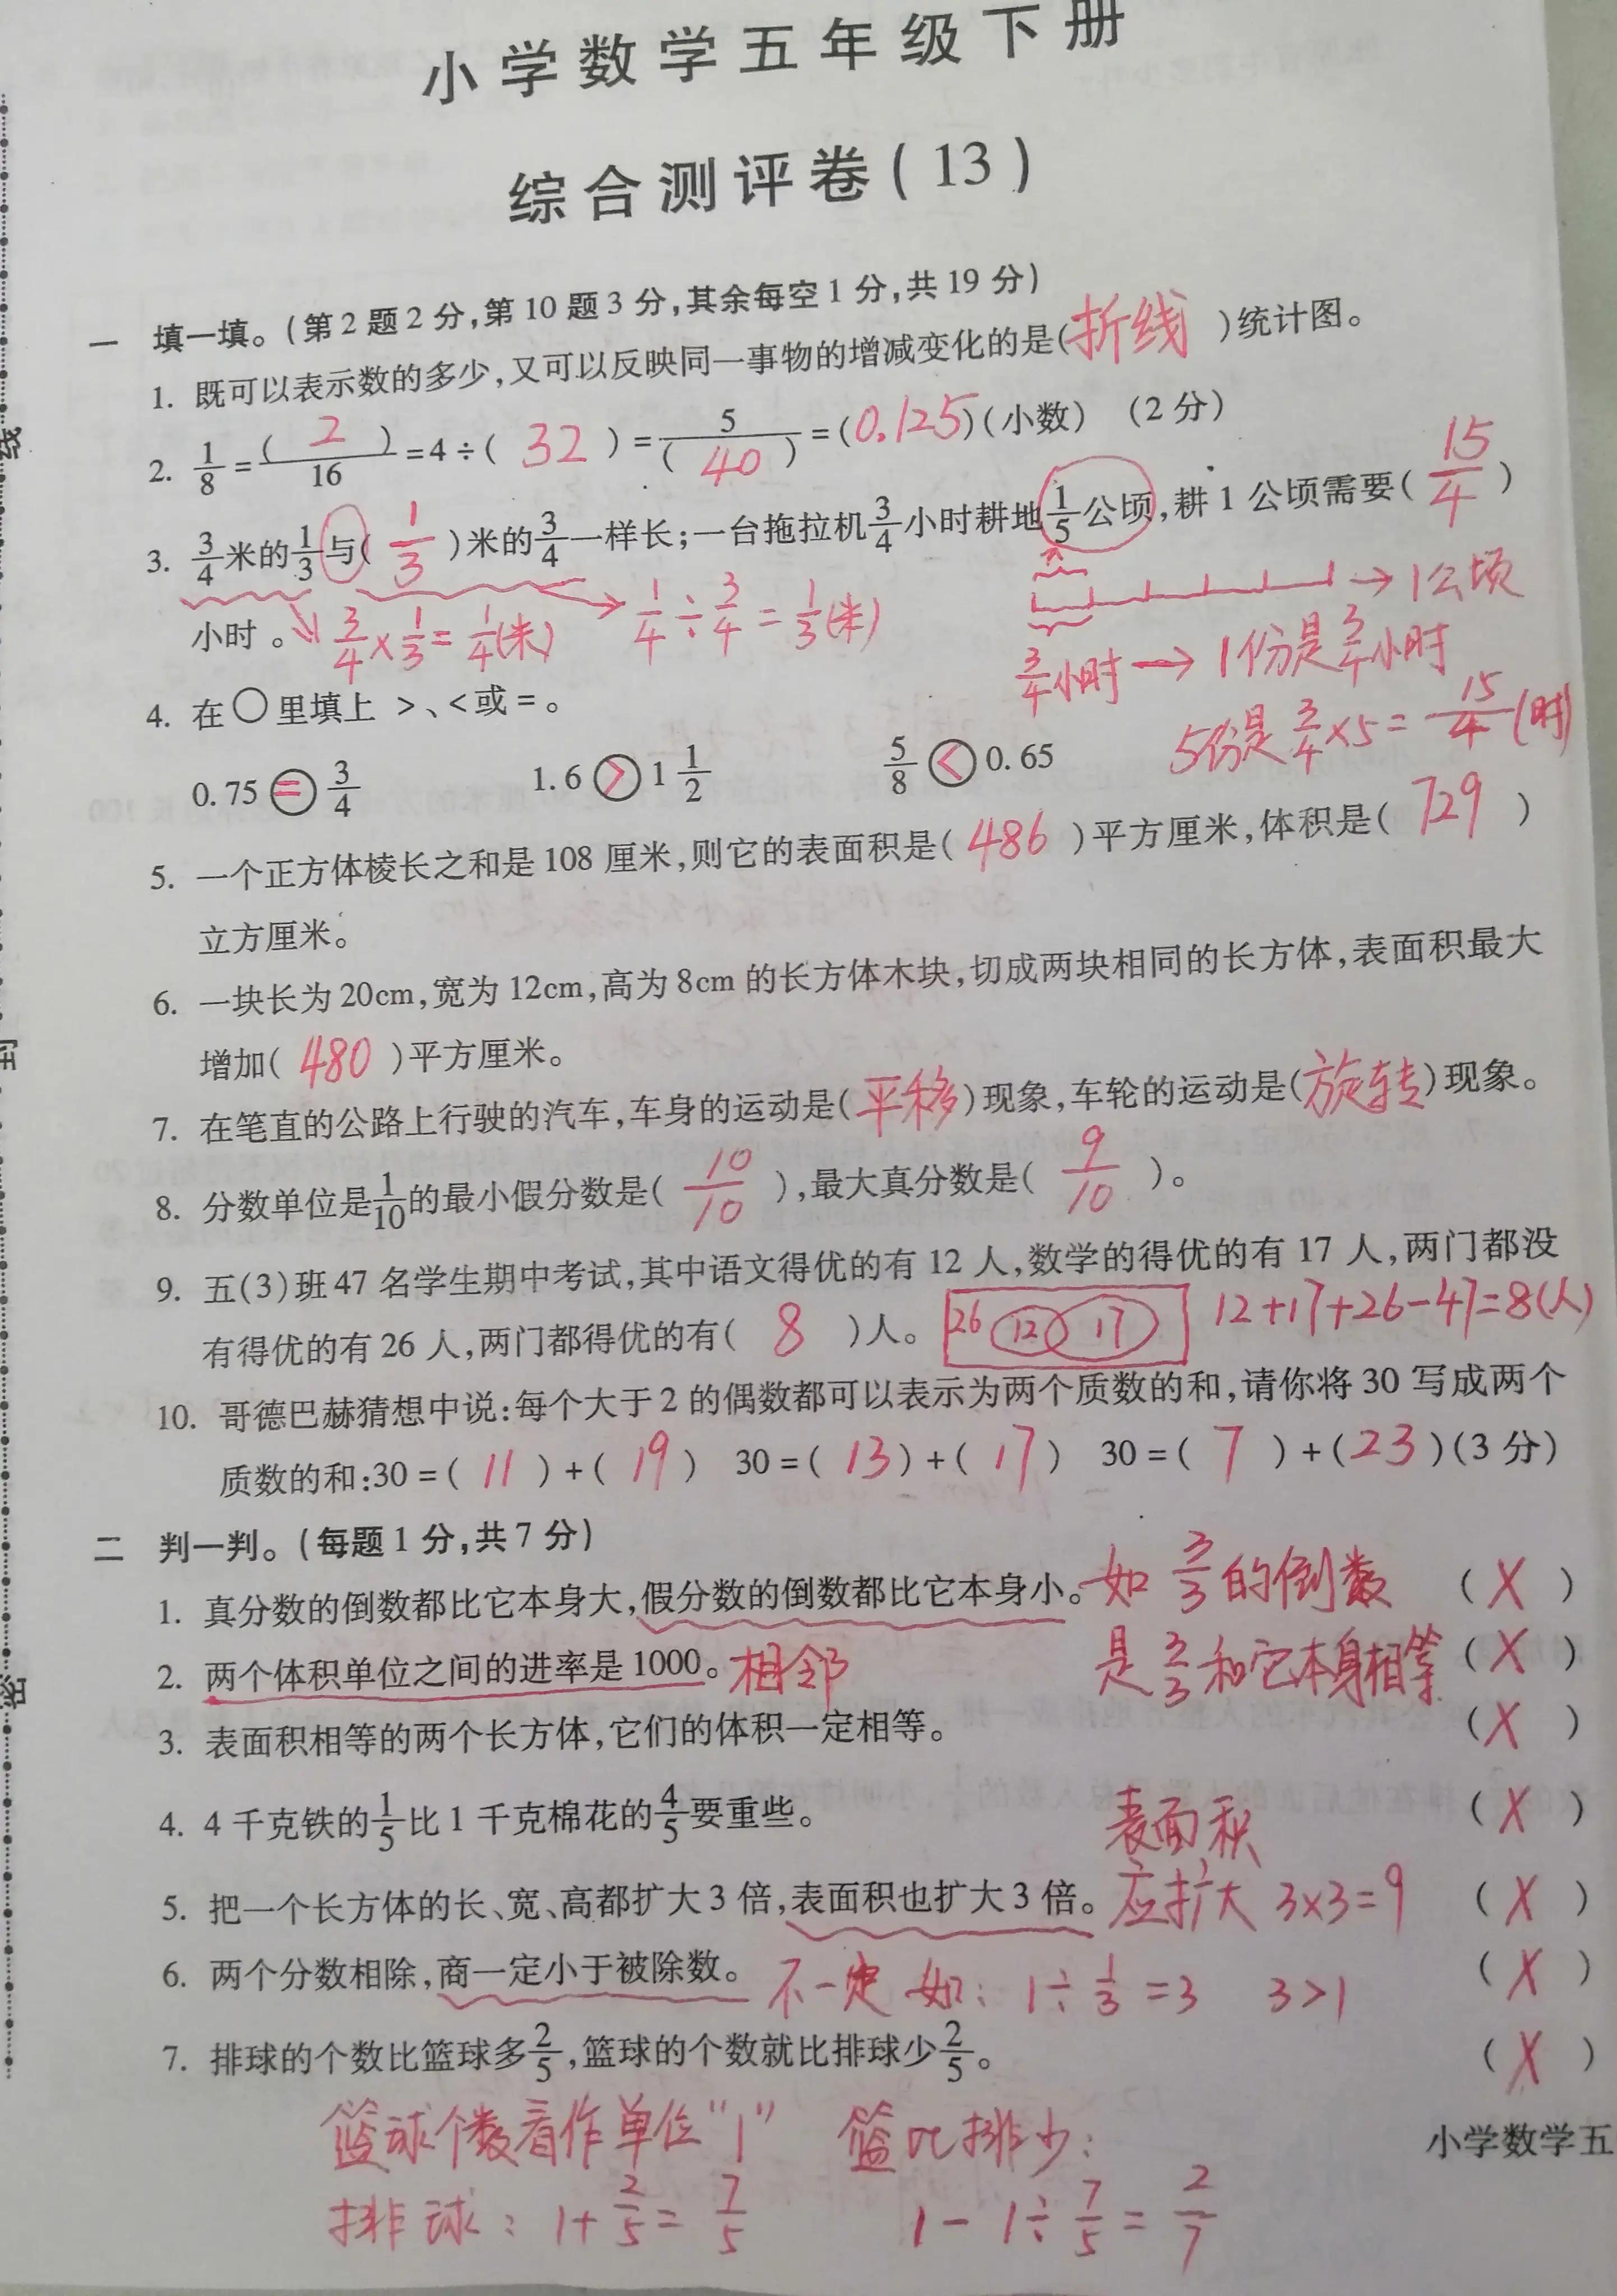 小学数学五年级下册
综合测评卷(13)
一 填一填。(第2题2分,第10题3分,其余每空1分,共19分)
1. 既可以表示数的多少,又可以反映同一事物的增减变化的是(折线)统计图。
2. 1/8=(2)/16=4÷(32)=5/(40)=(0.125)(小数) (2分)
3. 3/4米的1/3与(1/3)米的3/4一样长;一台拖拉机3/4小时耕地1/5公顷,耕1公顷需要(15/4)
→1公顷
小时。 3/4×1/3=1/4(米) 1/4÷3/4=1/3(米)
3/4小时→1份是3/4小时
4. 在○里填上 >、<或=。
5份是3/4×5=15/4(时)
0.75=3/4 1.6>1 1/2 5/8<0.65
5. 一个正方体棱长之和是108厘米,则它的表面积是(486)平方厘米,体积是(729)
立方厘米。
6. 一块长为20cm,宽为12cm,高为8cm的长方体木块,切成两块相同的长方体,表面积最大
增加(480)平方厘米。
7. 在笔直的公路上行驶的汽车,车身的运动是(平移)现象,车轮的运动是(旋转)现象。
8. 分数单位是1/10的最小假分数是(10/10),最大真分数是(9/10)。
9. 五(3)班47名学生期中考试,其中语文得优的有12人,数学的得优的有17人,两门都没
有得优的有26人,两门都得优的有(8)人。 26 12 17 12+17+26-47=8(人)
10. 哥德巴赫猜想中说:每个大于2的偶数都可以表示为两个质数的和,请你将30写成两个
质数的和:30=(11)+(19) 30=(13)+(17) 30=(7)+(23)(3分)
二 判一判。(每题1分,共7分)
1. 真分数的倒数都比它本身大,假分数的倒数都比它本身小。如3/3的倒数 (X)
2. 两个体积单位之间的进率是1000。相邻 是3/3和它本身相等 (X)
3. 表面积相等的两个长方体,它们的体积一定相等。 (X)
4. 4千克铁的1/5比1千克棉花的4/5要重些。 表面积 (X)
5. 把一个长方体的长、宽、高都扩大3倍,表面积也扩大3倍。应扩大 3×3=9 (X)
6. 两个分数相除,商一定小于被除数。 不一定 如: 1÷1/3=3 3>1 (X)
7. 排球的个数比篮球多2/5,篮球的个数就比排球少2/5。 (X)
篮球个数看作单位"1" 篮比排少:
小学数学五
排球:1+2/5=7/5 1-1÷7/5=2/7
线
封
密